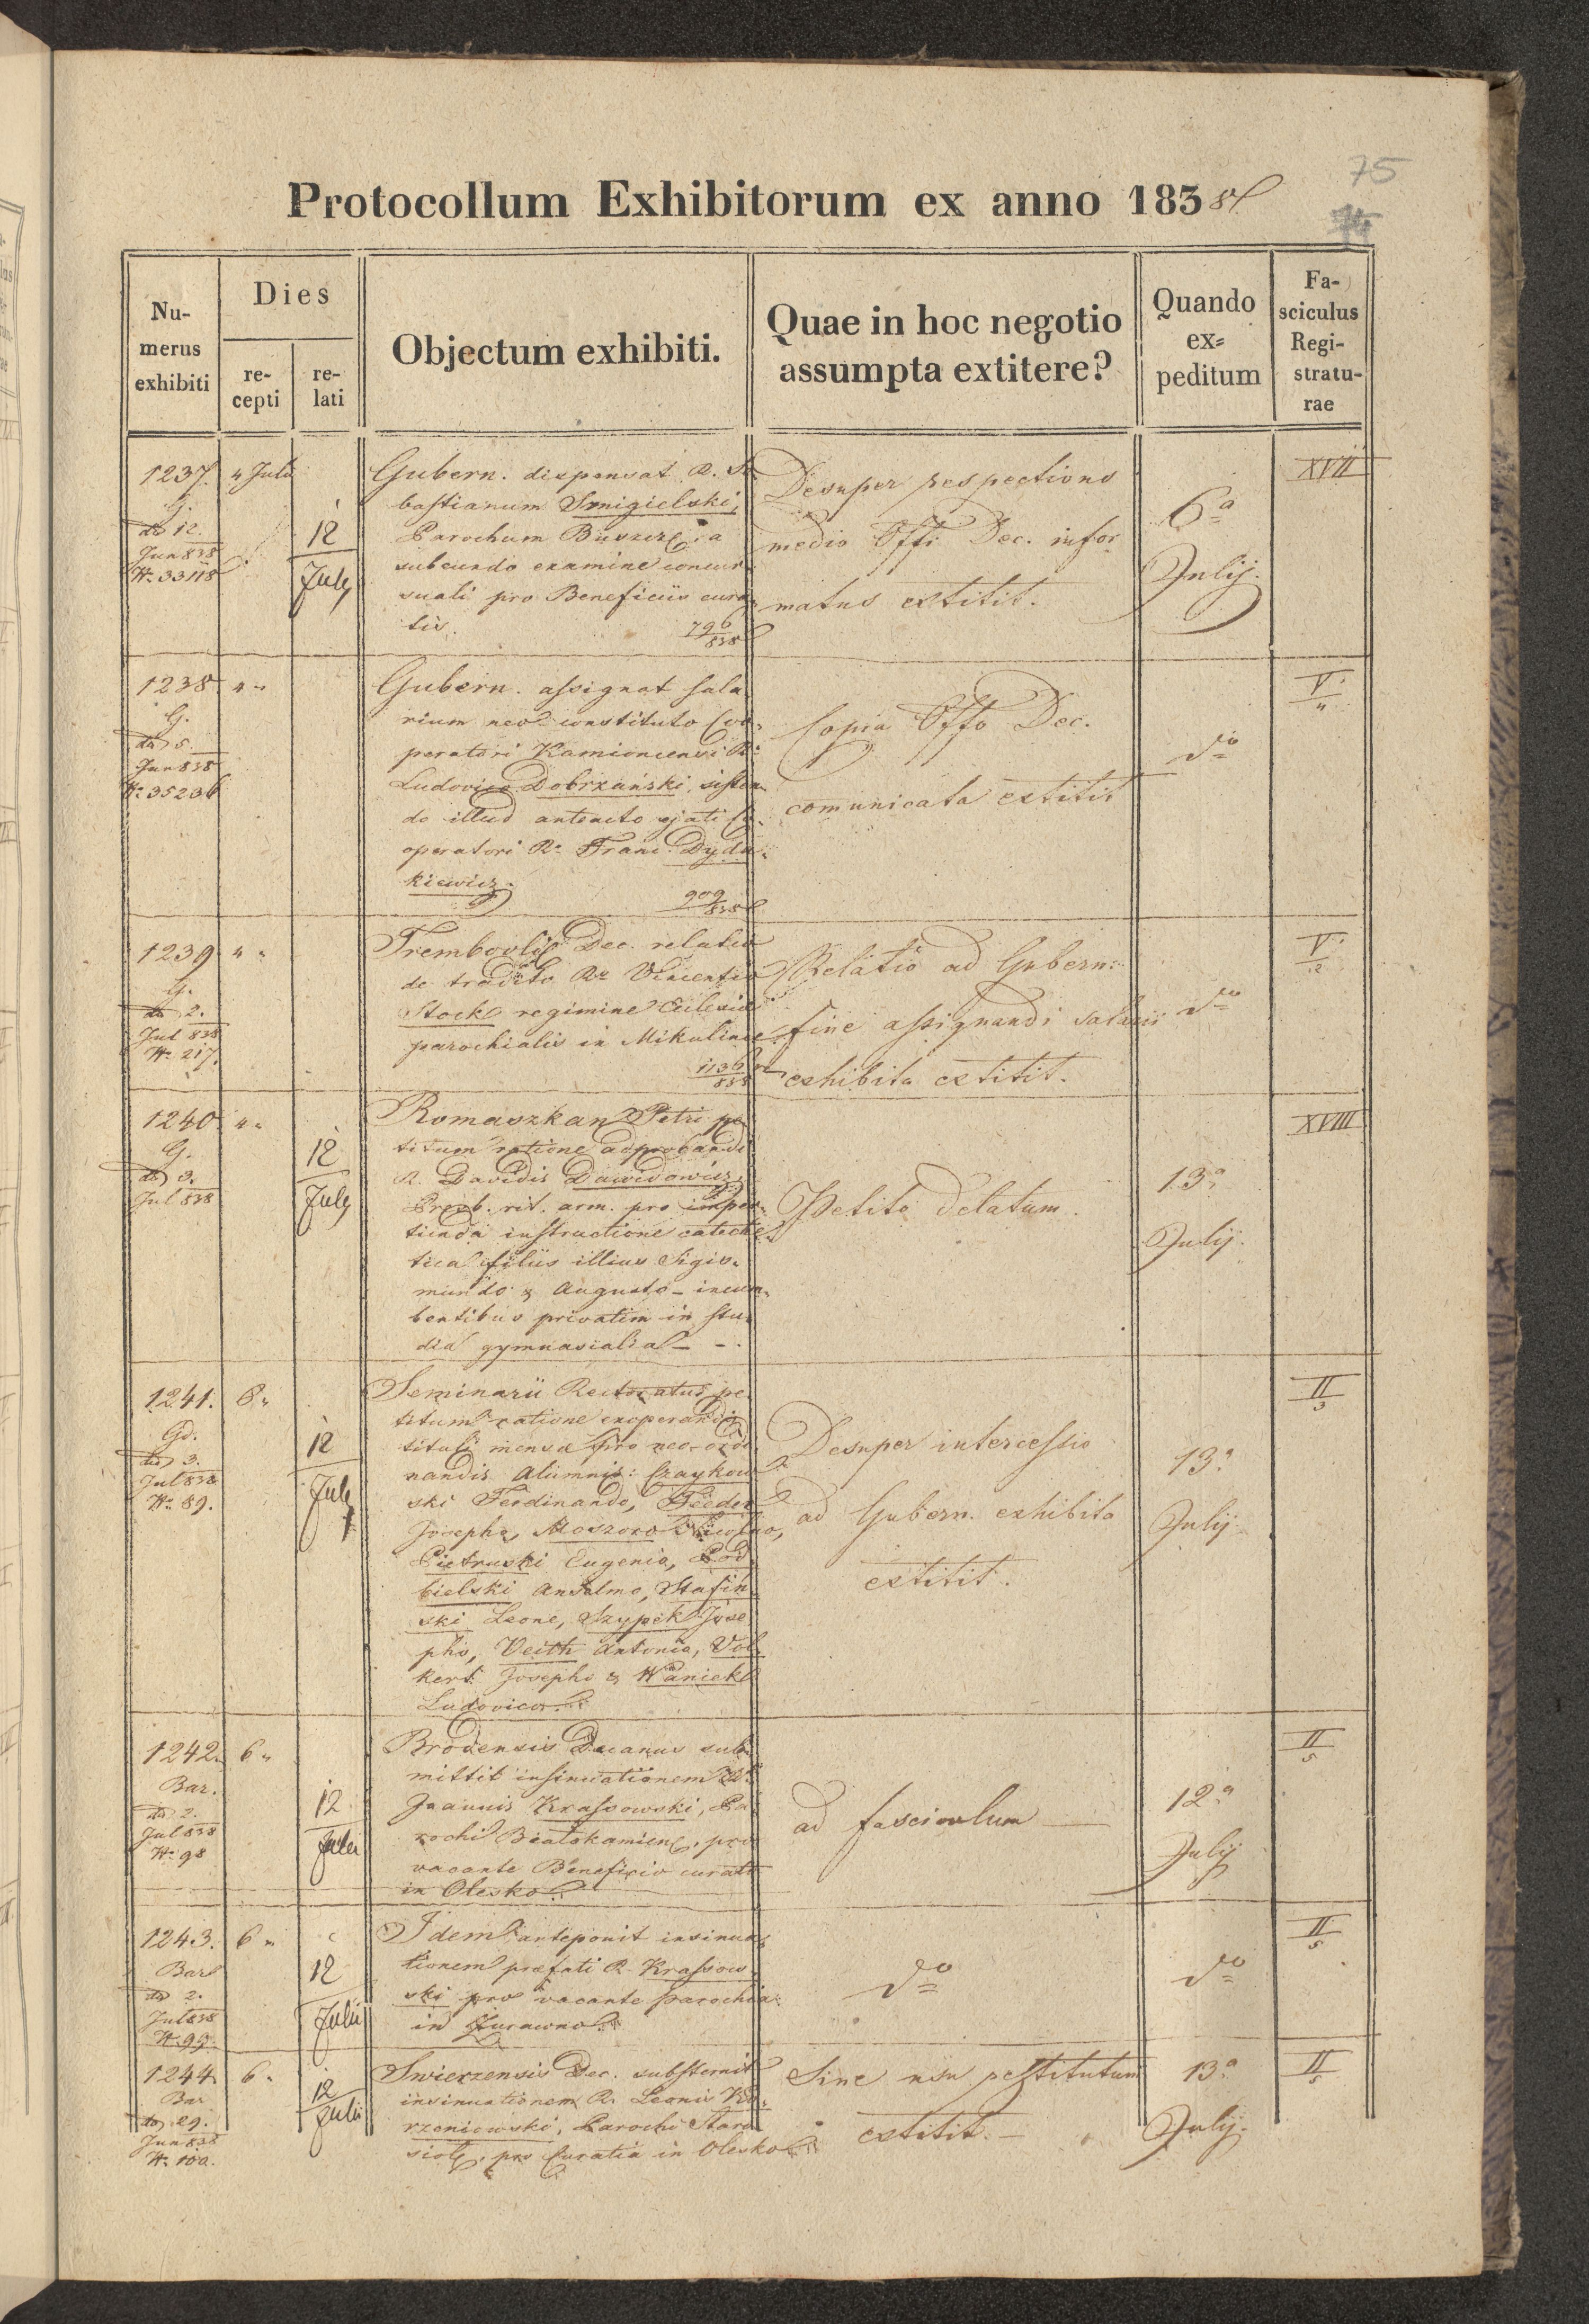 75
Protocollum Exhibitorum ex anno 1838
Nu-
merus
exhibiti
Dies
re-
cepti
re-
lati
Objectum exhibiti.
Quae in hoc negotio
assumpta extitere?
Quando
ex=
peditum
Fa-
sciculus
Regi-
stratu-
rae
1237.
G.
dto 12.
Jun 838
N. 33118
4 Julii
12
July
Gubern. dispensat R. Se
bastianum Smigielski,
Parochum Buszcz. a
subeundo examine concur
suali pro Beneficiis cura
tis.
796
838
Desuper respectivus
medio Offi Dec. infor
matus extitit.
6a
Julij.
XVII
1238
G.
dto 5.
Jun 838
N. 35236
4 "
Gubern. assignat sala
rium neo constituto Coo,
peratori Kamioncensi R.
Ludovico Dobrzański, sisten
do illud anteacto ejati Co,
operatori R. Franc. Dyda
kiewicz.
909
838
Copia Offo Dec.
comunicata extitit
do
V.
4
1239
G.
dto 2.
Jul 838
N. 217.
4 "
Trembovliē Dec. relatio
de tradito R. Vincentio
Stock regimine Eclesiæ
parochialis in Mikulince
1136
838
Relatio ad Gubern:
fine assignandi salarii
exhibita extitit.
do
V.
12
1240
G.
dto 3.
Jul 838
4 "
12
July
Romaszkan Petri pe
titum ratione adprobandi
R. Davidis Dawidowicz,
Presb. rit. arm. pro imper
tienda instructione cateche
tica filiis illius Sigis,
mundo & Augusto – incum,
bentibus privatim in stu
dia gymnasialia – – .
Petito delatum.
13a
Julij.
XVIII
1241.
Gd.
dto 3.
Jul 838
N. 89.
6 "
12
July
Seminarii Rectoratus pe
titum ratione exoperandi
tituli mensæ pro neo-ordi
nandis Alumnis: Czaykow
ski Ferdinando, Feeder
Josepho, Moszoro
Pietruski Eugenio, Pod
bielski Anselmo, Stafin
ski Leone, Szypek Jose
pho, Veith Antonio, Vol
kert Josepho & Waniek
Ludovico.
Desuper intercessio
ad Gubern. exhibita
extitit.
13a
Julij
II
3
1242.
Bar.
dto 2.
Jul 838
N. 98
6 "
12
Julii
Brodensis Decanus sub
mittit insinuationem R.
Joannis Krassowski, Pa
rochi Białokamien, pro
vacante Beneficio curato
in Olesko.
ad fasciculum
12a
Julij
II
5
1243.
Bar
dto 2.
Jul 838
N. 99.
6 "
12
Julii
Idem anteponit insinua,
tionem præfati R. Krassow
ski pro vacante parochia
in Zurawno.
do
do
II
5
1244.
Bar
dto 29.
Jun 838
N. 100.
6 "
12
Julii
Swierzensis Dec. substernit
insinuationem R. Leonis Ko
rzeniowski, Parochi Staro
siol, pro Curatia in Olesko
Sine usu restitutum
extitit. –
13a
Julij.
II
5